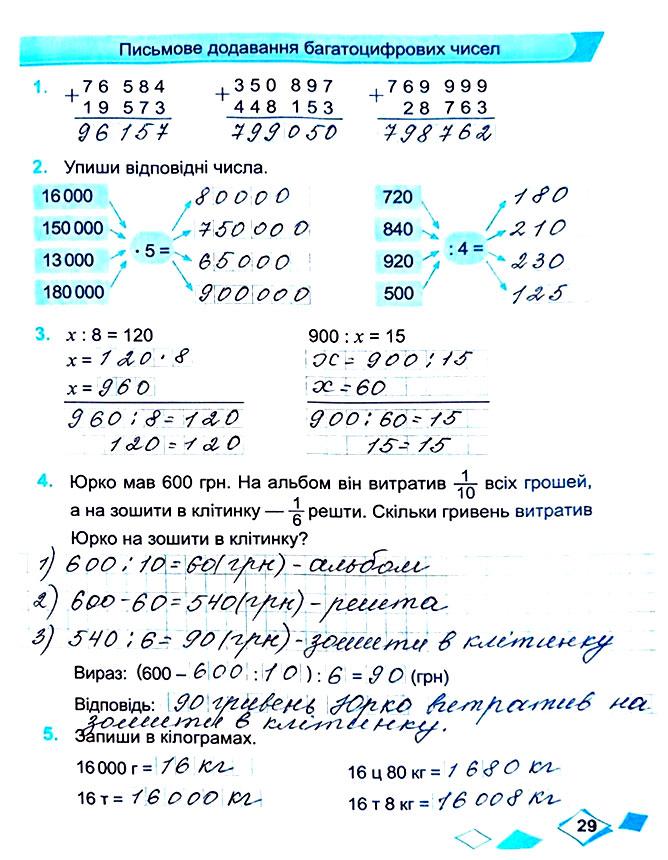 Письмове додавання багатоцифрових чисел
1. +76 584 +350 897 +769 999
19 573 448 153 28 763
96157 799050 798762
2. Упиши відповідні числа.
16 000 80000 720 180
150 000 750000 840 210
· 5 = : 4 =
13 000 65000 920 230
180 000 900000 500 125
3. x : 8 = 120 900 : x = 15
x = 120 · 8 x = 900 : 15
x = 960 x = 60
960 : 8 = 120 900 : 60 = 15
120 = 120 15 = 15
4. Юрко мав 600 грн. На альбом він витратив 1/10 всіх грошей,
а на зошити в клітинку — 1/6 решти. Скільки гривень витратив
Юрко на зошити в клітинку?
1) 600 : 10 = 60 (грн) - альбом
2) 600 - 60 = 540 (грн) - решта
3) 540 : 6 = 90 (грн) - зошити в клітинку
Вираз: (600 – 600 : 10) : 6 = 90 (грн)
Відповідь: 90 гривень Юрко витратив на
зошити в клітинку.
5. Запиши в кілограмах.
16 000 г = 16 кг 16 ц 80 кг = 1680 кг
16 т = 16000 кг 16 т 8 кг = 16008 кг
29